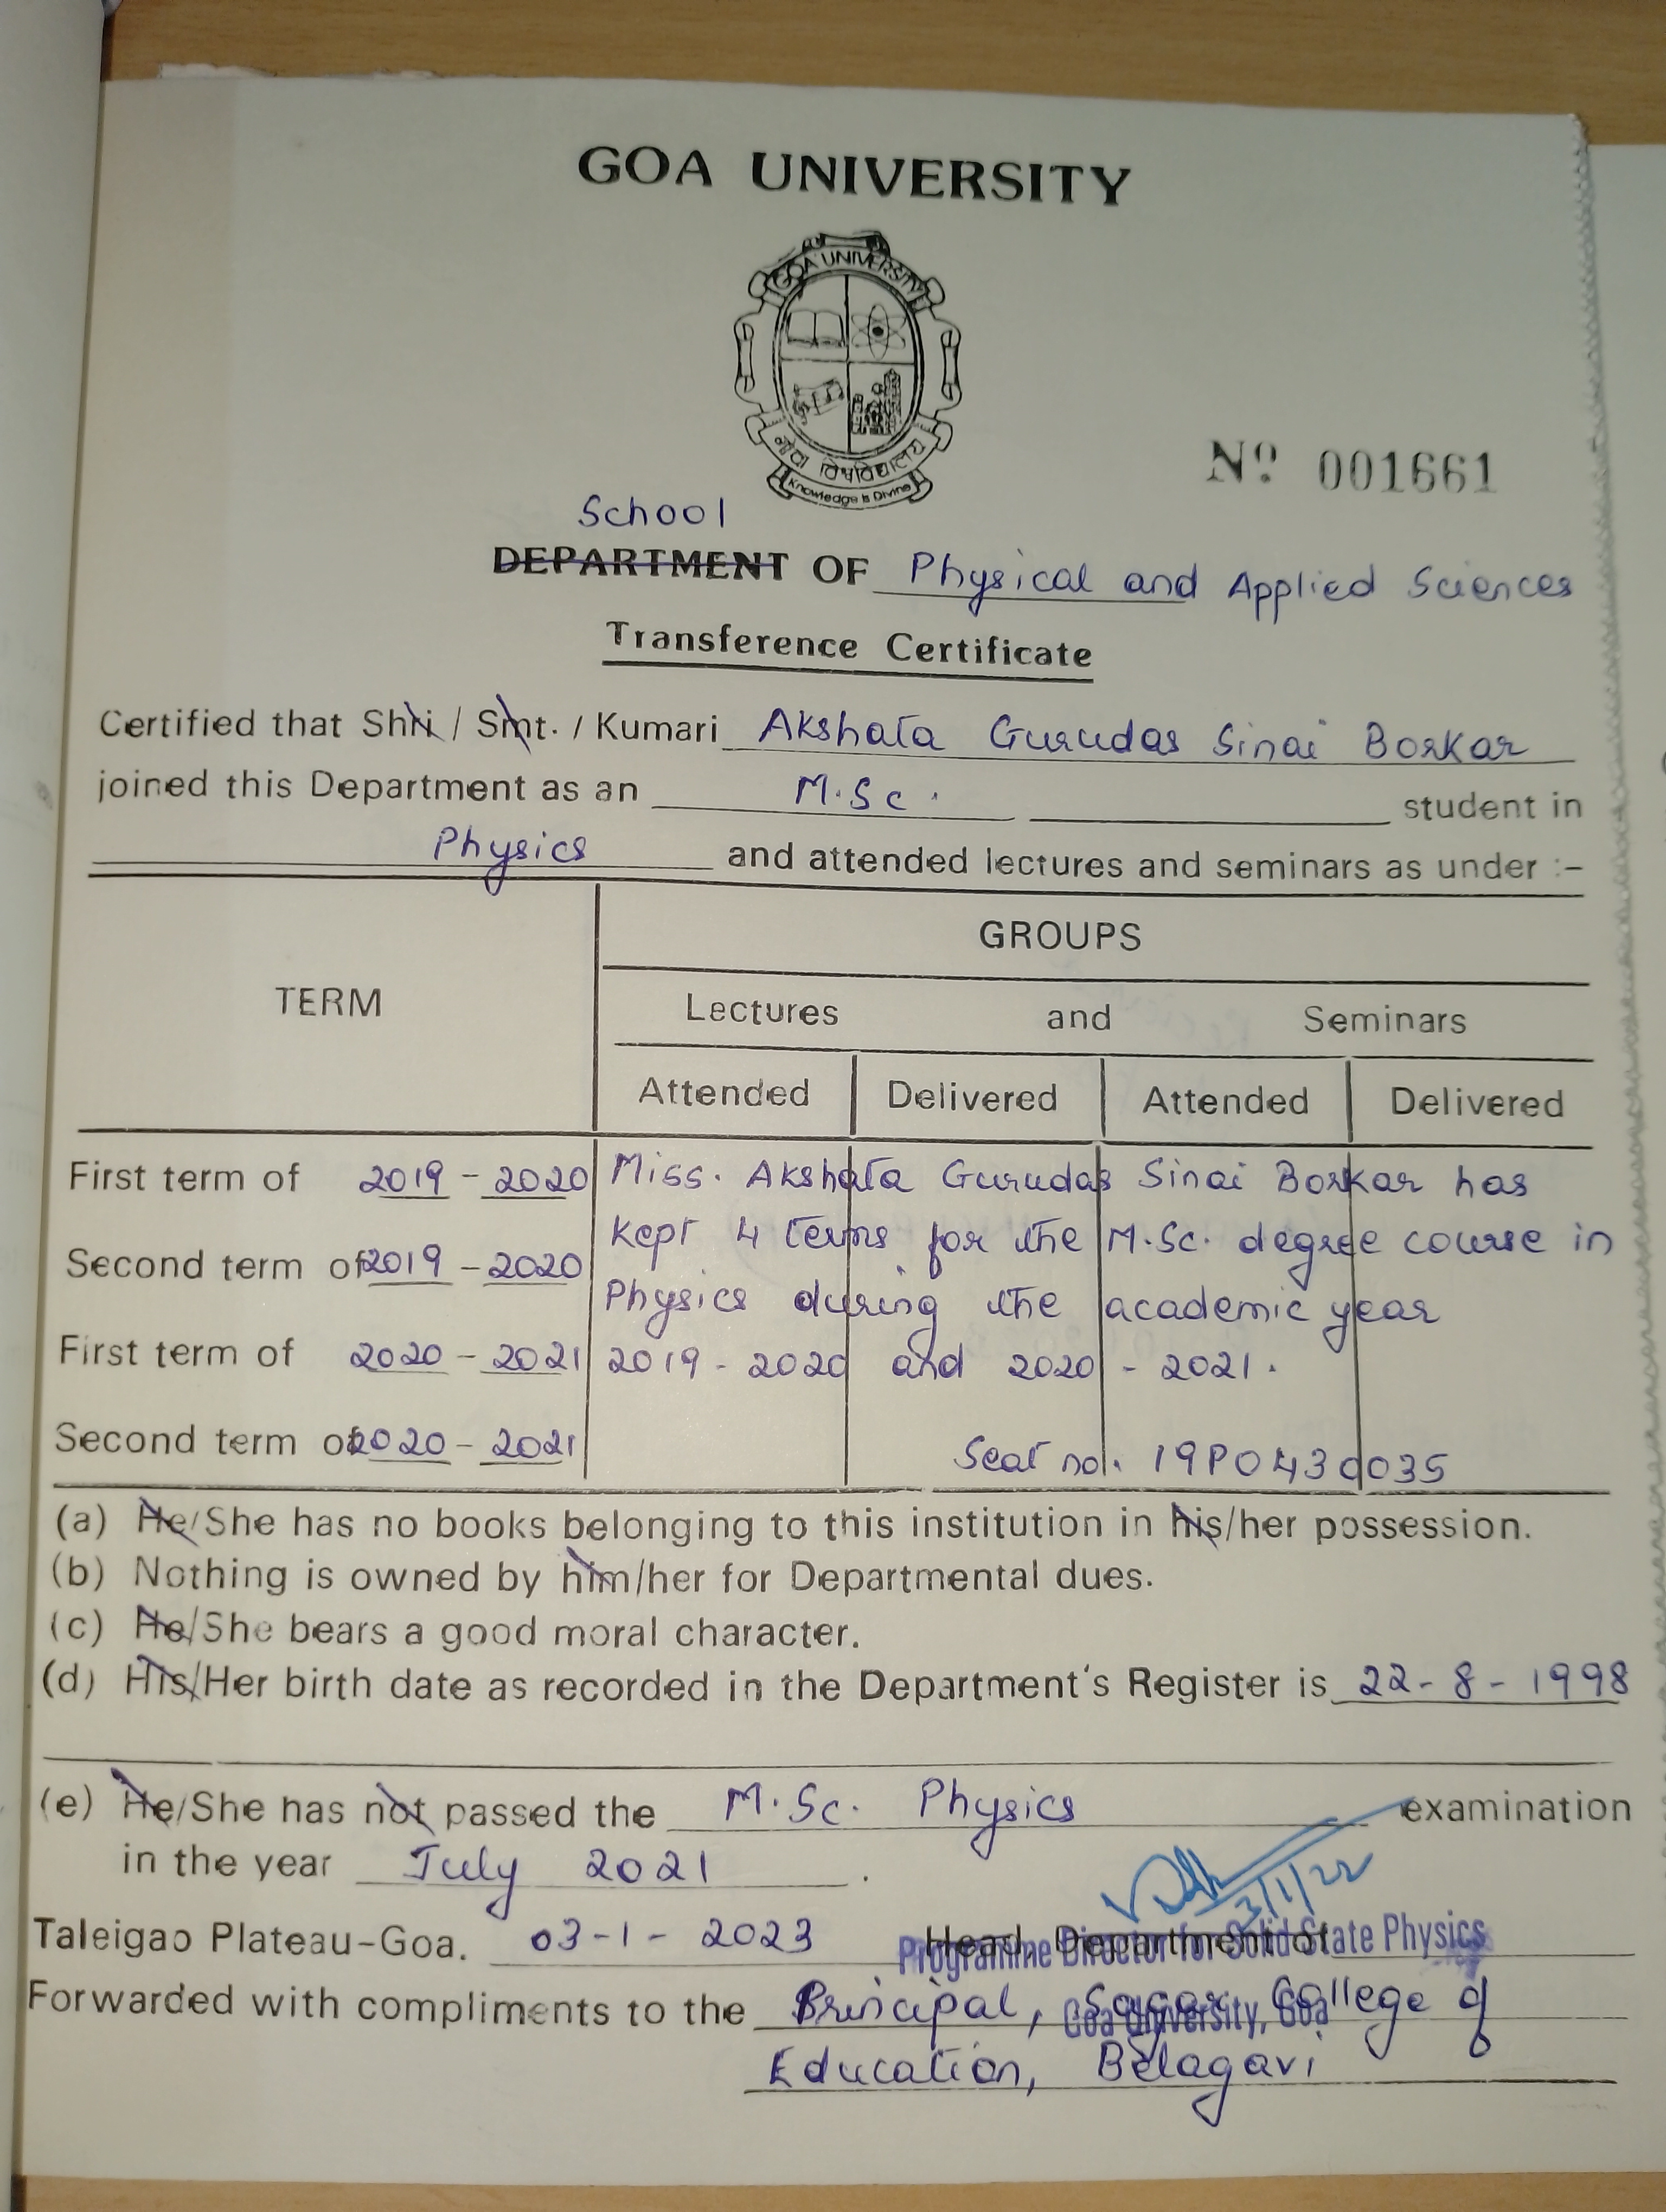 GOA UNIVERSITY
GOA UNIVERSITY
गोंय विश्वविद्यालय
Knowledge is Divine
Nº 001661
School
DEPARTMENT OF Physical and Applied Sciences
Transference Certificate
Certified that Shri / Smt. / Kumari Akshata Gurudas Sinai Borkar
joined this Department as an M.Sc. student in
Physics and attended lectures and seminars as under :-
GROUPS
TERM
Lectures and Seminars
Attended Delivered Attended Delivered
First term of 2019 - 2020 Miss. Akshata Gurudas Sinai Borkar has
kept 4 terms for the M.Sc. degree course in
Second term of 2019 - 2020
Physics during the academic year
First term of 2020 - 2021 2019 - 2020 and 2020 - 2021.
Second term of 2020 - 2021 Seat no. 19P0430035
(a) He/She has no books belonging to this institution in his/her possession.
(b) Nothing is owned by him/her for Departmental dues.
(c) He/She bears a good moral character.
(d) His/Her birth date as recorded in the Department's Register is 22-8-1998
(e) He/She has not passed the M.Sc. Physics examination
in the year July 2021.
3/1/22
Taleigao Plateau-Goa. 03-1-2023 Head, Department of
Programme Director for Solid State Physics
Forwarded with compliments to the Principal, Sagar College of
Goa University, Goa
Education, Belagavi